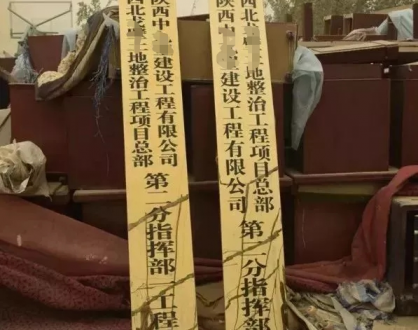 陕西中建设工程有限公司
西北土地整治工程项目总部
第二分指挥部 工程
陕西中建设工程有限公司
西北土地整治工程项目总部
第二分指挥部